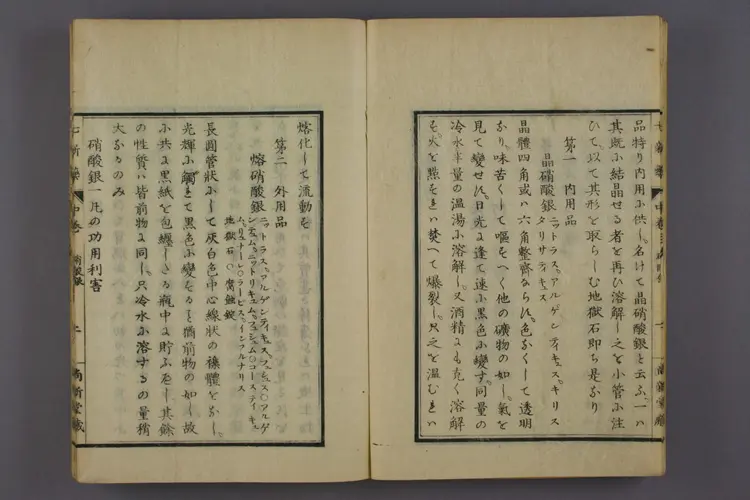 品特り内用ふ供し名けて晶硝酸銀と云ふ、一ハ
其既ふ結晶せる者を再ひ溶解し之を小管ふ注
ひて、以て其形を取らしむ地獄石即ち是なり
第一 内用品
晶硝酸銀
ニットラス。アルゲンティキュス。キリス
タリサティキス
晶體四角或ハ六角整齊ならす。色なくして透明
なり。味苦くして嘔をへく他の礦物の如し。氣を
見て變せす。日光よ逢て速ふ黒色ふ變す。同量の
冷水半量の温湯ふ溶解し。又酒精よも克く溶解
も。火を點をれハ焚へて爆裂し。只之を温むれハ
熔化して流動を
第二 外用品
熔硝酸銀
長圓管狀ふして灰白色中心線狀の襍體をなし。
光輝ふ觸れて黒色ふ變をること猶前物の如し故
ふ共よ黒紙を包纏しさる瓶中よ貯ふ可し。其餘
の性質ハ皆前物よ同し。只冷水ふ溶するの量稍
大なるのみ
硝酸銀一凡の功用利害
七新藥
中卷
硝酸銀